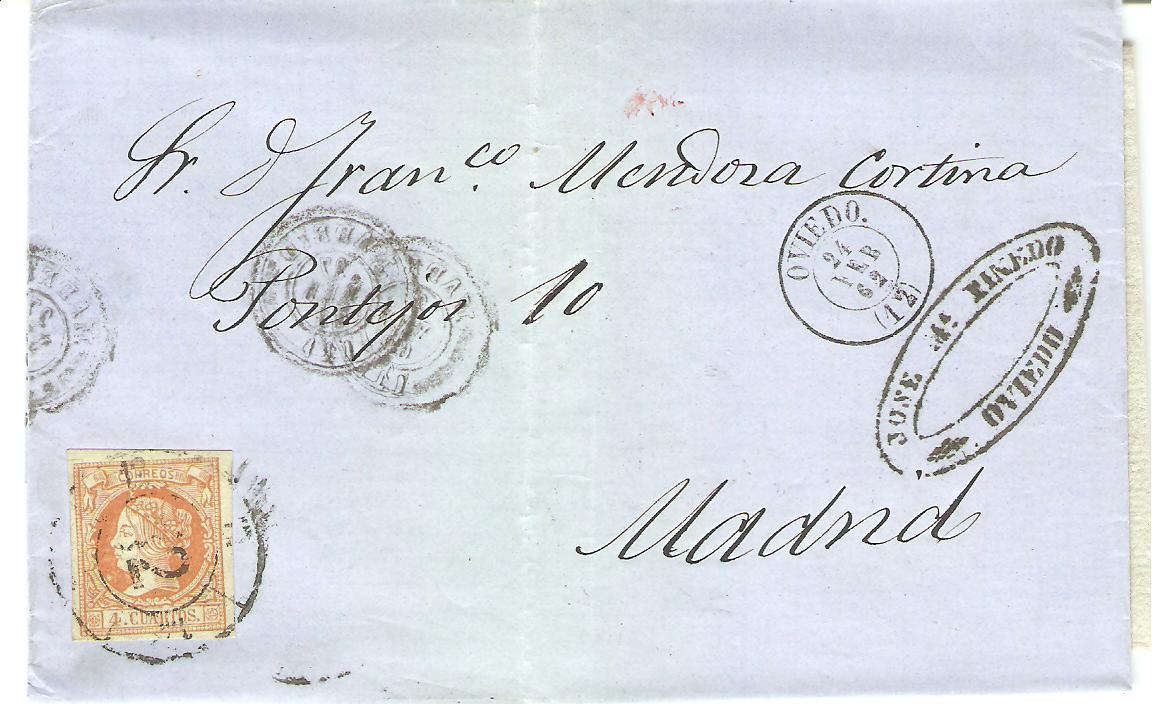 Sr. D Franco. Mendoza Cortina
Pontejos 10
Madrid
OVIEDO.
24
FEB
62
(12)
JOSE Mª
OVIEDO
CORREOS
4. CUARTOS.